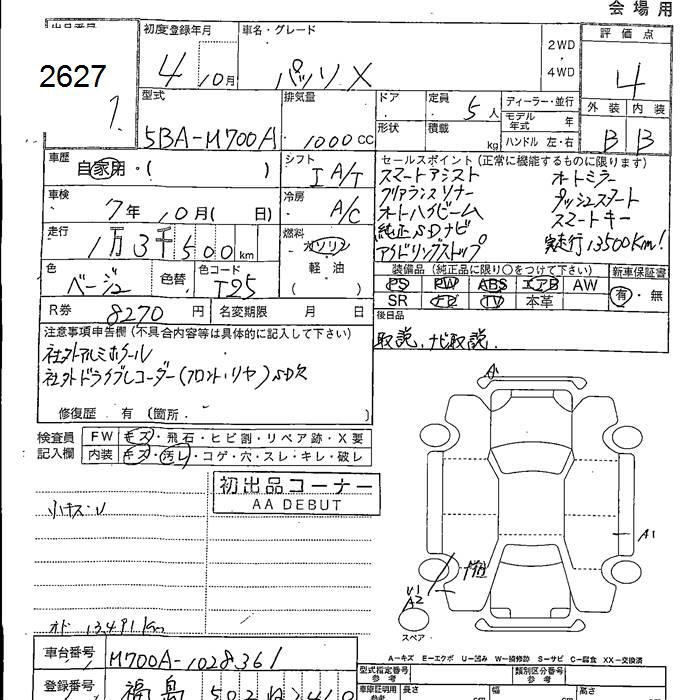 会場用
出品番号
2627
初度登録年月
4 10月
車名・グレード
パッソ X
2WD
・
4WD
評価点
4
外装 内装
B B
型式
5BA-M700A
排気量
1000 CC
ドア
形状
定員 5 人
積載 kg
ディーラー・並行
モデル年式 年
ハンドル 左・右
車歴
自家用・( )
シフト
I A/T
車検
7年 10月( 日)
冷房
A/C
走行
1万3千500km
燃料
ガソリン
軽油
色
ベージュ
色替
色コード
T25
R券 8270 円
名変期限 年 月 日
セールスポイント(正常に機能するものに限ります)
スマートアシスト オートミラー
クリアランスソナー プッシュスタート
オートハイビーム スマートキー
純正SDナビ 実走行13500Km!
アイドリングストップ
装備品(純正品に限り〇をつけて下さい)
PS PW ABS エアB AW
SR ナビ TV 本革
新車保証書
有・無
後日品
取説、ナビ取説.
注意事項申告欄(不具合内容等は具体的に記入して下さい)
社外アルミホイール
社外ドライブレコーダー(フロント・リヤ)SD欠
修復歴 有(箇所 )
検査員記入欄
FW キズ・飛石・ヒビ割・リペア跡・X要
内装 キズ・汚レ・コゲ・穴・スレ・キレ・破レ
初出品コーナー
AA DEBUT
小キズ・U
オド 13,491Km
A1
A1
U1
A2
スペア
A-キズ E-エクボ U-凹み W-補修跡 S-サビ C-腐食 XX-交換済
車台番号
M700A-1028361
登録番号
福島 502
型式指定番号
参考
類別区分番号
参考
車庫証明用
参考
長さ
幅
高さ